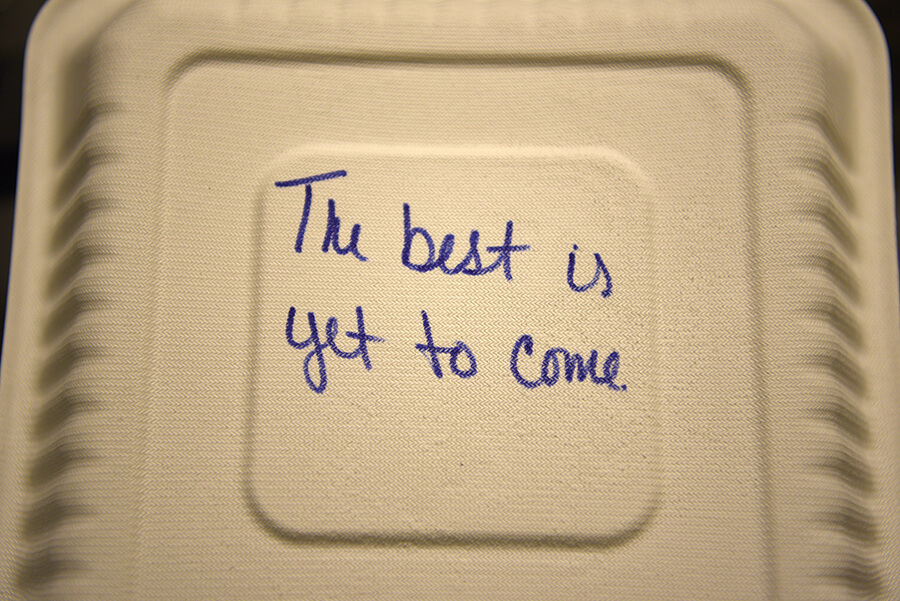 The best is
yet to come.